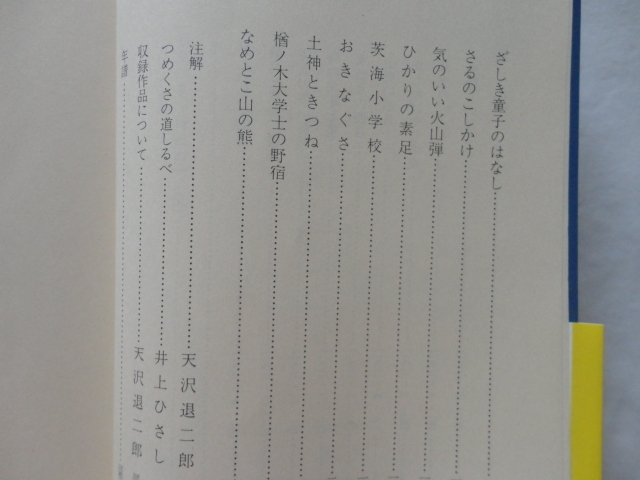 ざしき童子のはなし
さるのこしかけ
気のいい火山弾
ひかりの素足
茨海小学校
おきなぐさ
土神ときつね
楢ノ木大学士の野宿
なめとこ山の熊
注解 天沢退二郎
つめくさの道しるべ 井上ひさし
収録作品について 天沢退二郎
年譜